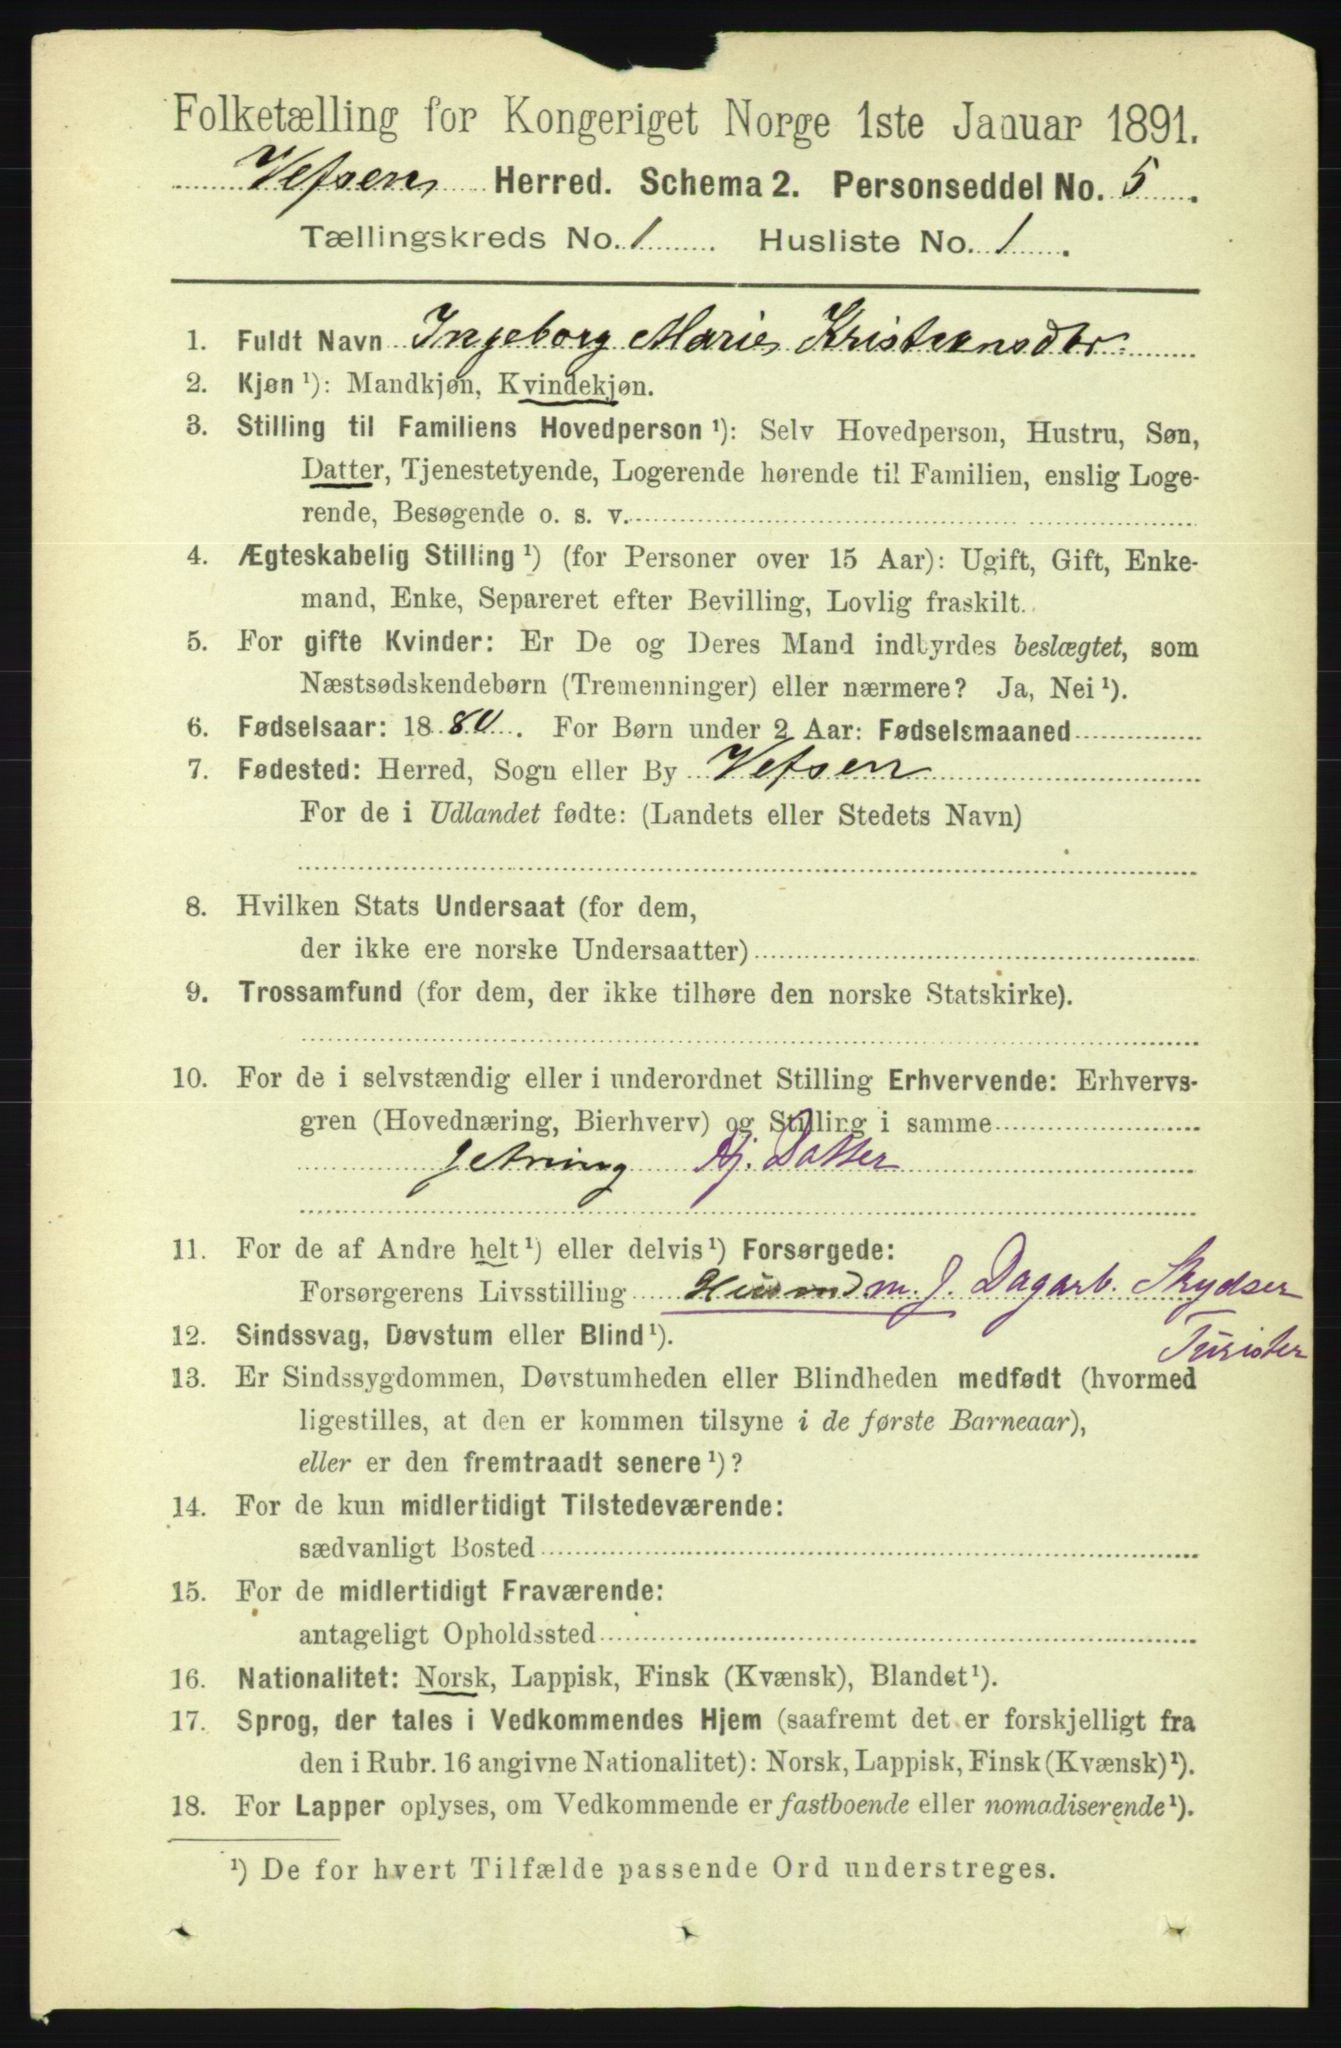 Folketælling for Kongeriget Norge 1ste Januar 1891.
Vefsen Herred. Schema 2. Personseddel No. 5.
Tællingskreds No. 1. Husliste No. 1.
1. Fuldt Navn Ingeborg Marie Kristensdtr.
2. Kjøn ¹): Mandkjøn, Kvindekjøn.
3. Stilling til Familiens Hovedperson ¹): Selv Hovedperson, Hustru, Søn,
Datter, Tjenestetyende, Logerende hørende til Familien, enslig Loge-
rende, Besøgende o. s. v.
4. Ægteskabelig Stilling ¹) (for Personer over 15 Aar): Ugift, Gift, Enke-
mand, Enke, Separeret efter Bevilling, Lovlig fraskilt.
5. For gifte Kvinder: Er De og Deres Mand indbyrdes beslægtet, som
Næstsødskendebørn (Tremenninger) eller nærmere? Ja, Nei ¹).
6. Fødselsaar: 1880. For Børn under 2 Aar: Fødselsmaaned
7. Fødested: Herred, Sogn eller By Vefsen
For de i Udlandet fødte: (Landets eller Stedets Navn)
8. Hvilken Stats Undersaat (for dem,
der ikke ere norske Undersaatter)
9. Trossamfund (for dem, der ikke tilhøre den norske Statskirke).
10. For de i selvstændig eller i underordnet Stilling Erhvervende: Erhvervs-
gren (Hovednæring, Bierhverv) og Stilling i samme
Hj. Datter
11. For de af Andre helt ¹) eller delvis ¹) Forsørgede:
Forsørgerens Livsstilling Husmd m. J. Dagarb. Skydser
Turister
12. Sindssvag, Døvstum eller Blind ¹).
13. Er Sindssygdommen, Døvstumheden eller Blindheden medfødt (hvormed
ligestilles, at den er kommen tilsyne i de første Barneaar),
eller er den fremtraadt senere ¹)?
14. For de kun midlertidigt Tilstedeværende:
sædvanligt Bosted
15. For de midlertidigt Fraværende:
antageligt Opholdssted
16. Nationalitet: Norsk, Lappisk, Finsk (Kvænsk), Blandet ¹).
17. Sprog, der tales i Vedkommendes Hjem (saafremt det er forskjelligt fra
den i Rubr. 16 angivne Nationalitet): Norsk, Lappisk, Finsk (Kvænsk) ¹).
18. For Lapper oplyses, om Vedkommende er fastboende eller nomadiserende ¹).
¹) De for hvert Tilfælde passende Ord understreges.